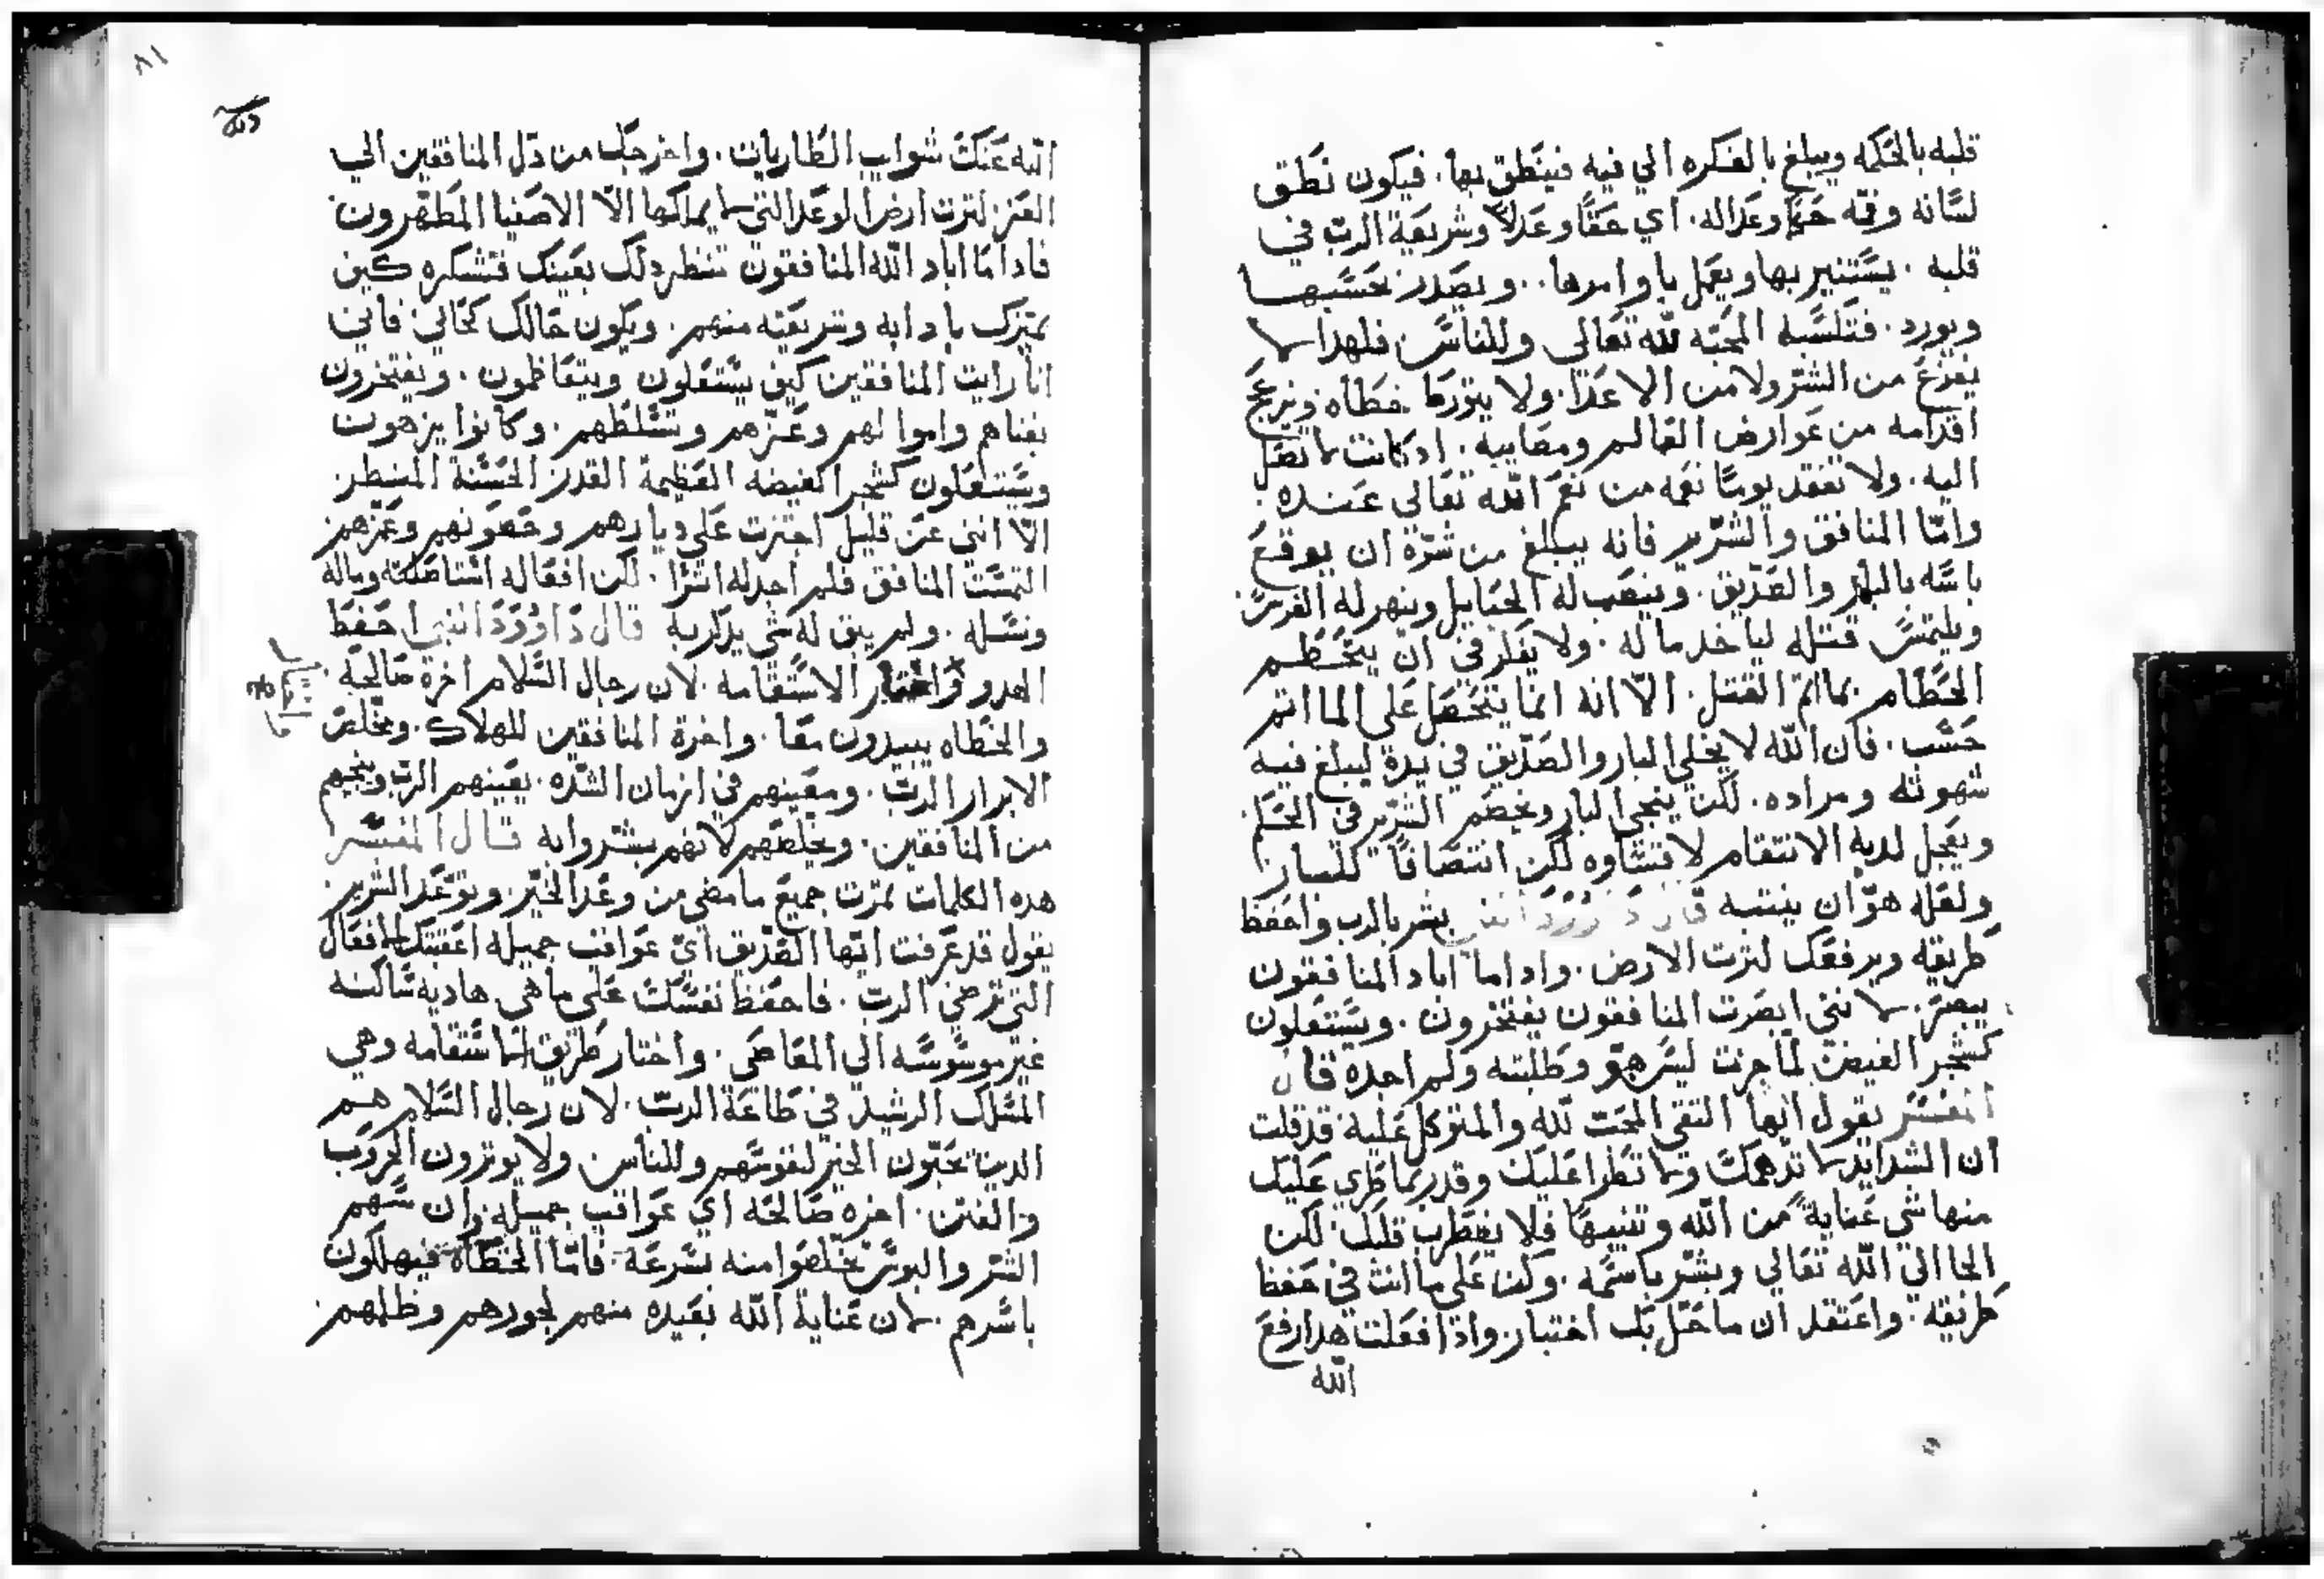 قلبه بالحكمه ويبلغ بالفكره الي فيه فينطق بها. فيكون نطق
لسانه وفمه حكما وعداله. اي حقا وعدلا وشريعة الرب في
قلبه. يستنير بها ويعمل باوامرها.. ويصدر بحسبها
ويورد. فتلسبه المحبه لله تعالي وللناس فلهدا لا
يفزع من الشر ولا من الاعدا. ولا يتورط خطاه ويزعج
اقدامه من عوارض العالم ومصايبه. اد كانت لا تصل
اليه. ولا تفقد يوما نعمه من نعم الله تعالي عنده
واما المنافق والشرير فانه يبلغ من شره ان يوقع
باسه بالبار والصديق. وينصب له الحبايل وينهر له الفريس
ويلتمس قتله لياخد ماله. ولا يفكر في ان يتحطم
الحطام بماثم القتل. الا انه انما يتحصل علي الماثم
حسب. فان الله لا يخلي البار والصديق في يده ليبلغ فيه
شهوته ومراده. لكن ينجي البار ويخصم الشرير في الحكم
ويعجل لديه الانتقام لا قساوه لكن انتصافا للبار
ولعله هو ان ينتبه قال داوود النبي بشر بالرب واحفظ
طريقه ويرفعك لترت الارض. واداما اباد المنافقون
يبصر. لانني ابصرت المنافقون يفتخرون. ويستعلون
كشجر الغيض لما جزت ليس هو وطلبته ولم اجده قال
المفسر يقول ايها التقي المحب لله والمتوكل عليه قد قلت
ان الشدايد لا تدهمك ولا تطرا عليك وقد ربما طري عليك
منها شي عناية من الله وتنبيها فلا يضطرب قلبك لكن
الجا الي الله تعالي وبشر باسمه. وكن علي ما انت في حفظ
طريقه. واعتقد ان ما حل بك اختبار. واذا فعلت هدا رفع
الله
٨١
الله عنك شوايب الطاريات. واخرجك من دل المنافقين الي
العز لترت ارض الوعد التي لا يملكها الا الاصفيا المطهرون
فاداما اباد الله المنافقون تنظر دلك بعينك فتشكره كين
ميزك بادابه وشريعته منهم. ويكون حالك كحالي فاني
انا رايت المنافقين كيف يستعلون ويتعاظمون. ويفتخرون
بغناهم واموالهم وعزهم وتسلطهم. وكانوا يزهون
ويستعلون كشجر الغيضه العظيمة القدر الحسنة المنظر
الا انني عن قليل اجتزت علي ديارهم وحصونهم وعزهم
التمست المنافق فلم اجد له اثرا. لكن افعاله استاصلته وماله
ونسله. ولم يبق له شي يدكر به قال داوود النبي احفظ
الهدو واختار الاستقامه. لان رجال السلام اخرة صالحه.
والخطاه يبيدون معا. واخرة المنافقين للهلاك. وخلاص
الابرار الرب. ومعينهم في ازمان الشده. يعينهم الرب وينجيهم
من المنافقين. ويخلصهم لانهم بشروا به قال المفسر
هده الكلمات تمرت جميع ما مضي من وعد الخير وتوعد الشرير
يقول قد عرفت ايها الصديق اي عواقب جميله اعقبتك الافعال
التي ترضي الرب. فاحفظ نفسك علي ما هي هاديه ساكنه
غير موسوسه الي المعاصي. واختار طريق الاستقامه وهي
المسلك الرشيد في طاعة الرب. لان رجال السلام هم
الدين يحبون الخير لنفوسهم وللناس ولا يوترون الحروب
والفتن. اخره صالحه اي عواقب جميله وان مسهم
الشر والبوس تخلصوا منه بسرعة. فاما الخطاه فيهلكون
باسرهم. لان عناية الله بعيده منهم لجورهم وظلمهم